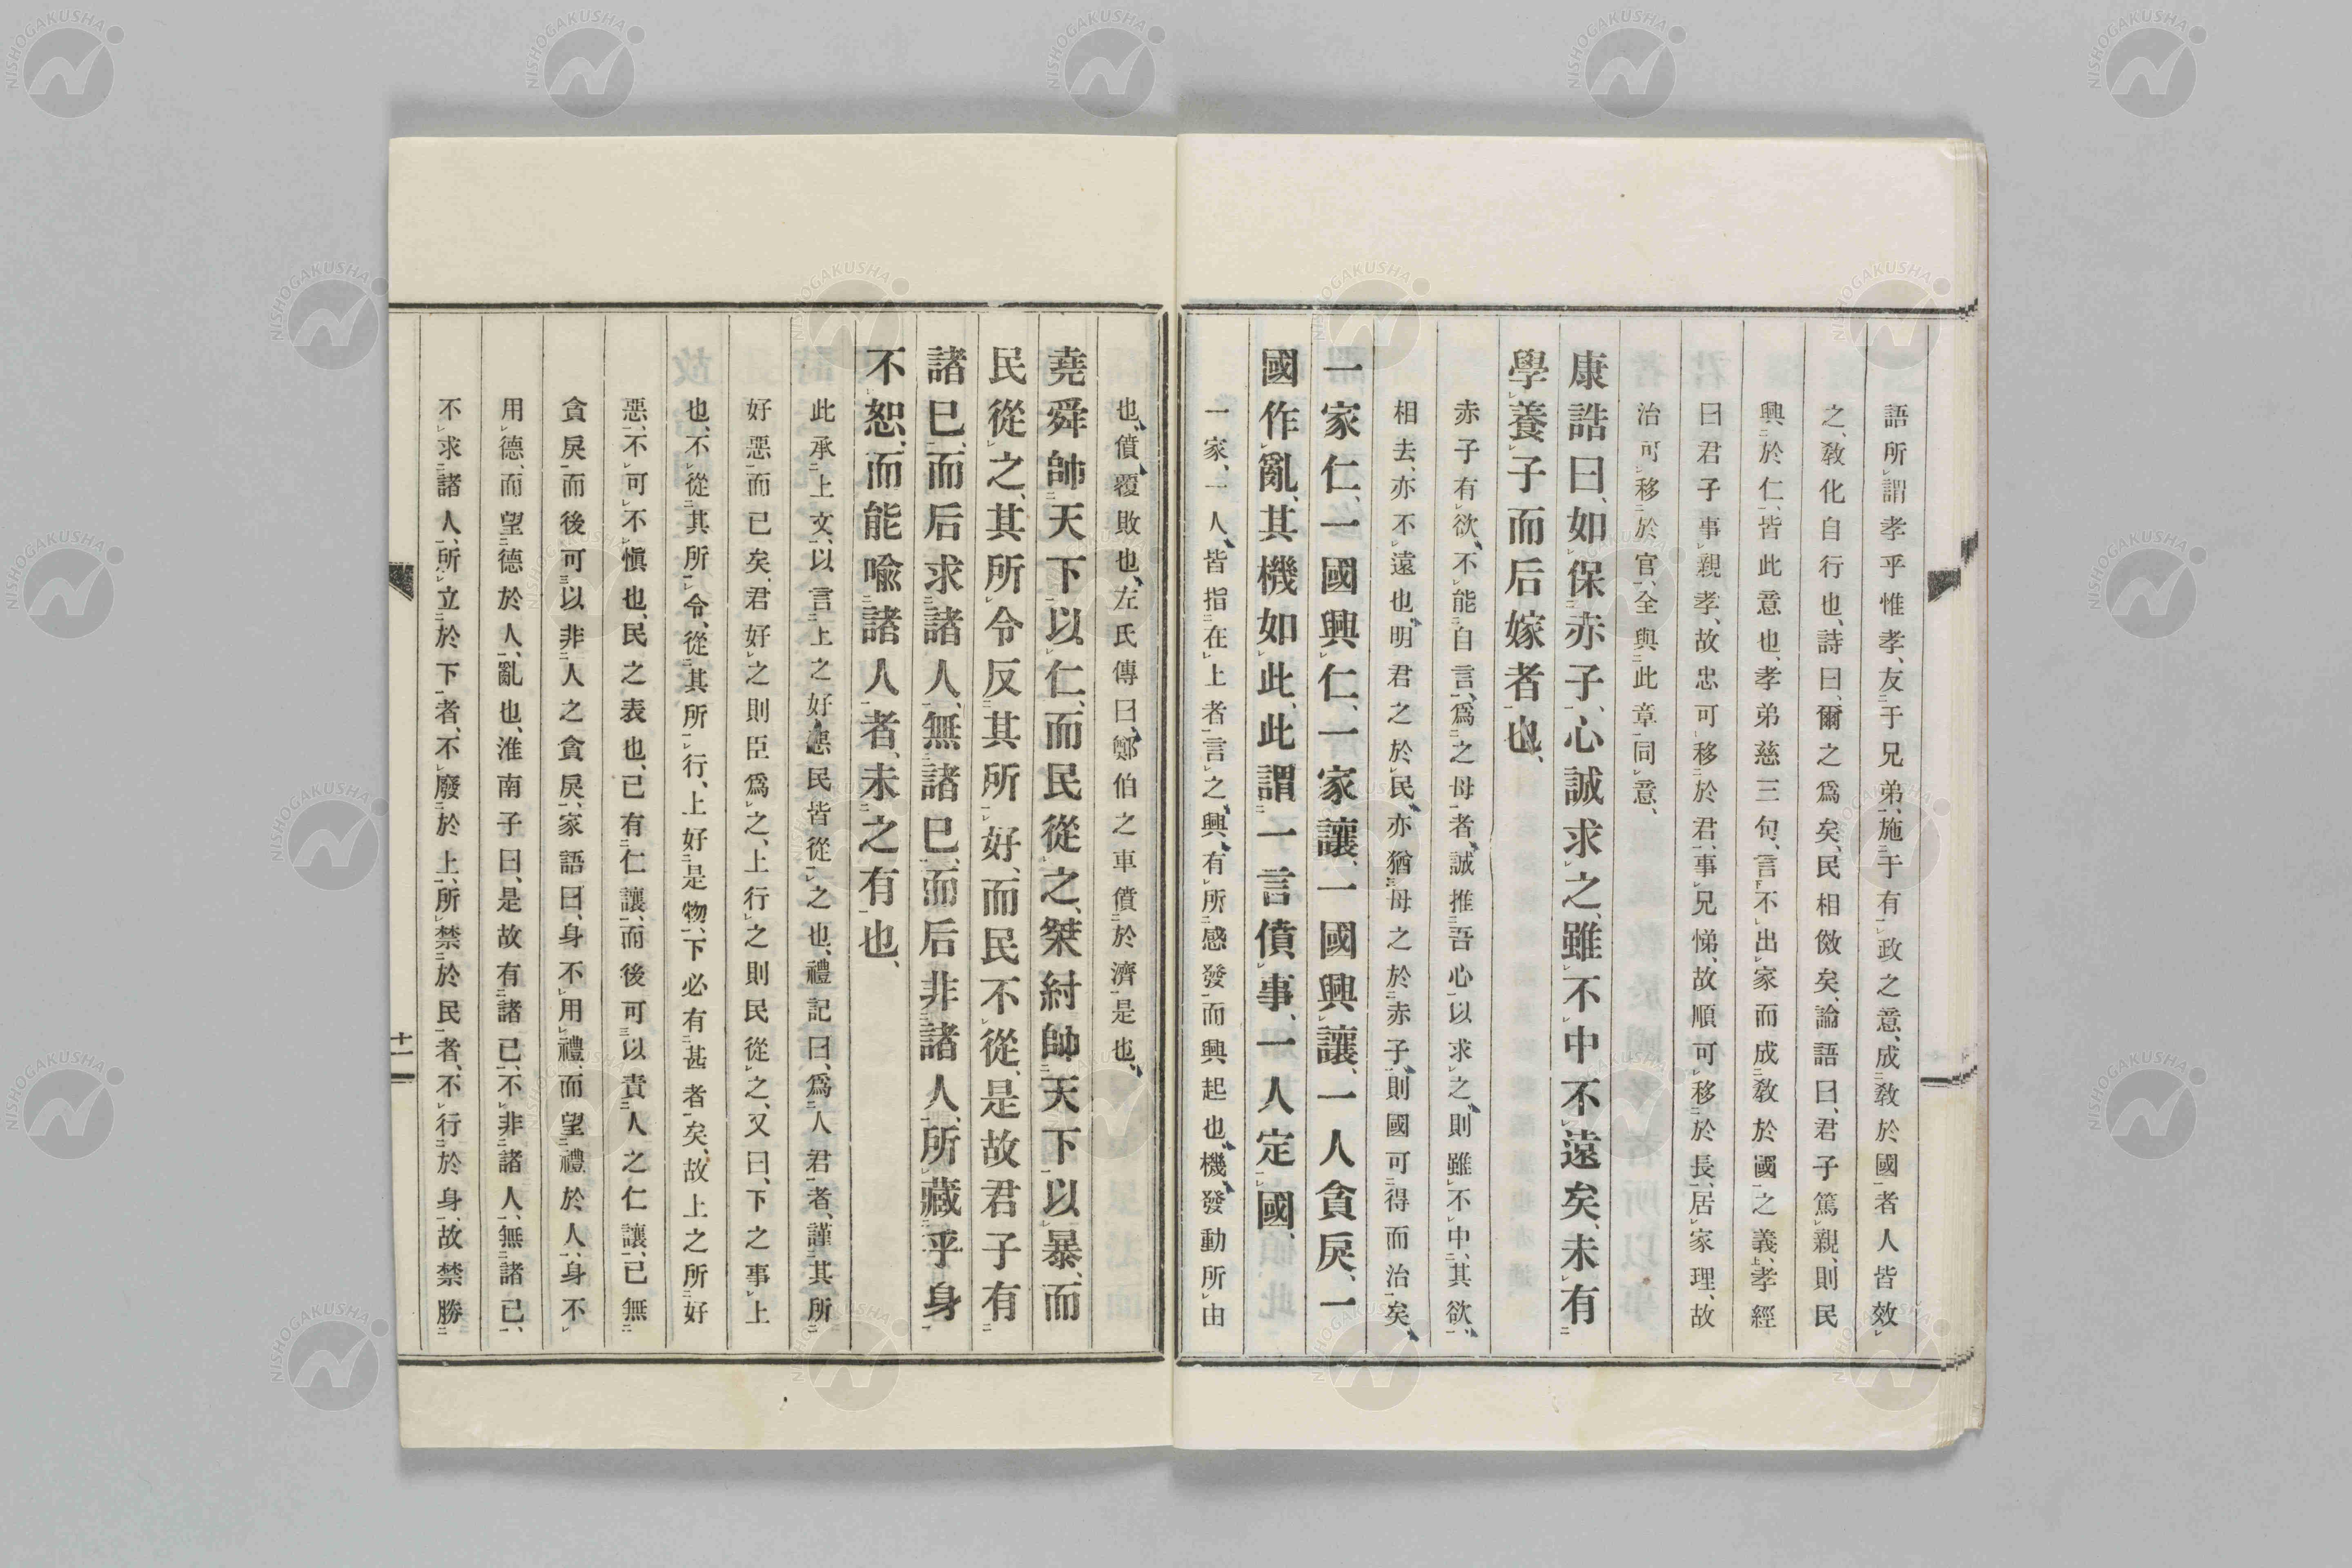 語所謂孝乎惟孝、友于兄弟、施于有政之意、成敎於國者人皆效
之、敎化自行也、詩曰、爾之爲矣、民相傚矣、論語曰、君子篤親、則民
興於仁、皆此意也、孝弟慈三句、言不出家而成敎於國之義、孝經
曰君子事親孝、故忠可移於君、事兄悌、故順可移於長、居家理、故
治可移於官、全與此章同意、
康誥曰、如保赤子、心誠求之、雖不中不遠矣、未有
學養子而后嫁者也、
赤子有欲、不能自言、爲之母者、誠推吾心以求之、則雖不中、其欲、
相去、亦不遠也、明君之於民、亦猶母之於赤子、則國可得而治矣、
一家仁、一國興仁、一家讓、一國興讓、一人貪戾、一
國作亂、其機如此、此謂一言僨事、一人定國、
一家、一人、皆指在上者言之、興、有所感發而興起也、機、發動所由
也、僨、覆敗也、左氏傳曰、鄭伯之車僨於濟、是也、
堯舜帥天下以仁、而民從之、桀紂帥天下以暴、而
民從之、其所令反其所好、而民不從、是故君子有
諸已、而后求諸人、無諸已、而后非諸人、所藏乎身
不恕、而能喩諸人者、未之有也、
此承上文、以言上之好惡民皆從之也、禮記曰、爲人君者、謹其所
好惡而已矣、君好之則臣爲之、上行之則民從之、又曰、下之事上
也、不從其所令、從其所行、上好是物、下必有甚者矣、故上之所好
惡、不可不愼也、民之表也、已有仁讓、而後可以責人之仁讓、已無
貪戾而後可以非人之貪戾、家語曰、身不用禮、而望禮於人、身不
用德、而望德於人、亂也、淮南子曰、是故有諸已、不非諸人、無諸已、
不求諸人、所立於下者、不廢於上、所禁於民者、不行於身、故禁勝
十一
NISHOGAKUSHA